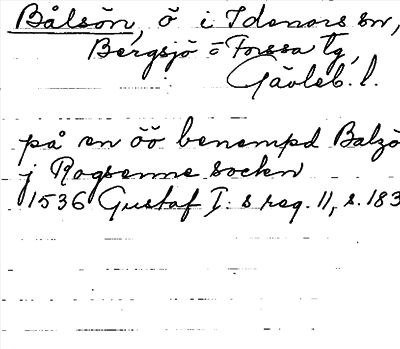 Bålsön, ö i Idenors sn,
Bergsjö o Forssa tg,
Gävleb. l.
på en öö benempd Balzö
j Rogsenne sockn
1536 Gustaf I:s reg. 11, s. 183